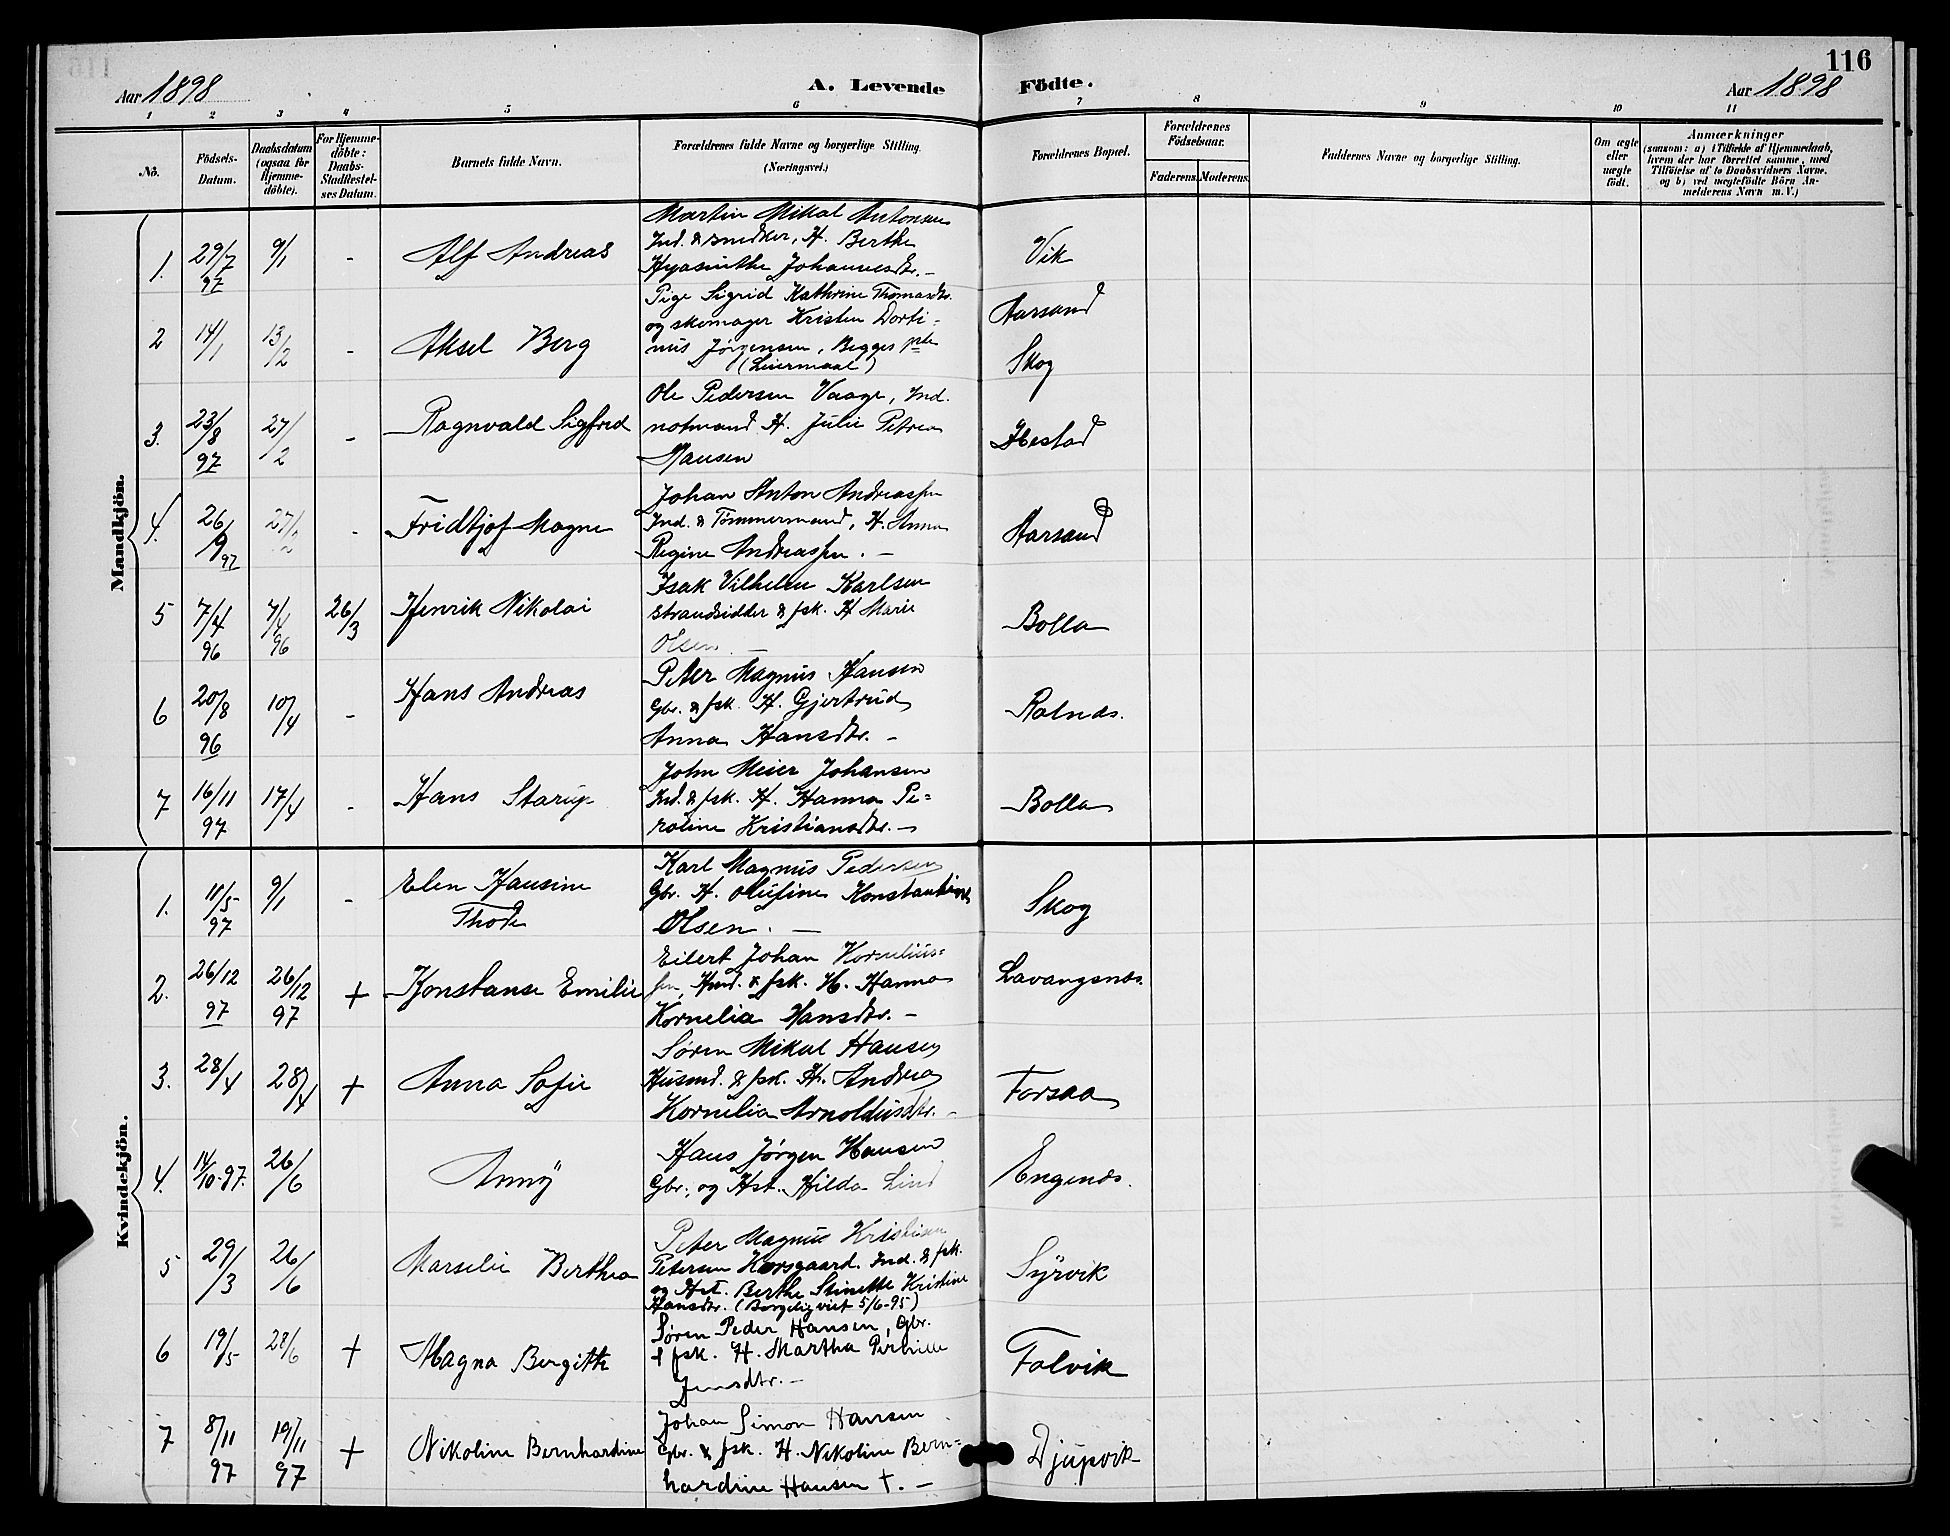 116
Aar 1898
A. Levende Födte.
Aar 1898
1 2 3 4 5 6 7 8 9 10 11
No.
Födsels-Datum.
Daabsdatum (ogsaa for Hjemme-döbte).
For Hjemme-döbte: Daabs-Stadfæstel-ses Datum.
Barnets fulde Navn.
Forældrenes fulde Navne og borgerlige Stilling.
(Næringsvei.)
Forældrenes Bopæl.
Forældrenes Födselsaar.
Faderens. Moderens.
Faddernes Navne og borgerlige Stilling.
Om ægte eller uægte födt.
Anmærkninger
(saasom: a) i Tilfælde af Hjemmedaab, hvem der har forrettet samme, med Tilföielse af to Daabsvidners Navne, og b) ved uægtefödte Börn An-melderens Navn m. V.)
Mandkjön.
1. 29/7 97 9/1 - Alf Andreas
Martin Mikal Antonsen
Ind. & snedker, H. Berthe
Hyasinthe Johannesdtr. -
Vik
2 14/1 13/2 - Aksel Berg
Pige Sigrid Kathrine Thomasdtr.
og skomager Kristen Dorti-
nus Jörgensen, Begges
(Leiermaal)
Aarsand
Skog
3. 23/8 97 27/2 - Ragnvald Sigfred
Ole Pedersen Vaage, Ind.
notmand H. Julie Petrea
Hansen
Ibestad
4. 26/9 97 27/2 - Fridtjof Magne
Johan Anton Andreassen
Ind. & Tömmermand, H. Anna
Regine Andreassen. -
Aarsand
5 7/4 96 7/4 96 26/3 Henrik Nikolai
Isak Vilhelm Karlsen
strandsidder & fsk. H Marie
Olsen. -
Bolla
6 20/8 96 10/4 - Hans Andreas
Peter Magnus Hansen
Gbr. & fsk. H. Gjertrud
Anna Hansdtr. -
Rolnæs.
7 16/11 97 17/4 - Hans Starup
John Meier Johansen
Ind. & fsk. H. Hanna Pe-
roline Kristiansdtr. -
Bolla
Kvindekjön.
1. 11/5 97 9/1 - Elen Hansine
Thode
Karl Magnus Pedersen
Gbr. H. Olufine Konstantine
Olsen. -
Skog
2. 26/12 97 26/12 97 + Konstanse Emilie
Eilert Johan Kornelius-
sen, Husmd. & fsk. H. Hanna
Kornelia Hansdtr. -
Lavangsnæs.
3. 28/4 28/4 + Anna Sofie
Sören Mikal Hansen
Husmd. & fsk. H. Andrea
Kornelia Arnoldusdtr. -
Forsaa
4. 14/10-97. 26/6 Anny
Hans Jörgen Hansen
Gbr. og Hst. Hilda Lind
Engenæs.
5 29/3 26/6 Marselie Berthea
Peter Magnus Kristian
Petersen Korsgaard. Ind. & fsk.
og Hst. Berthe Stinette Kristine
Hansdtr. (Borgelig viet 5/6-95)
Syrvik
6 19/5 28/6 + Magna Bergitte
Sören Peder Hansen, Gbr.
& fsk. H. Martha Pernille
Jensdtr. -
Falvik
7 8/11 97 19/11 97 + Nikoline Bernhardine
Johan Simon Hansen
Gbr. & fsk. H. Nikoline Bern-
hardine Hansen †. -
Djupvik